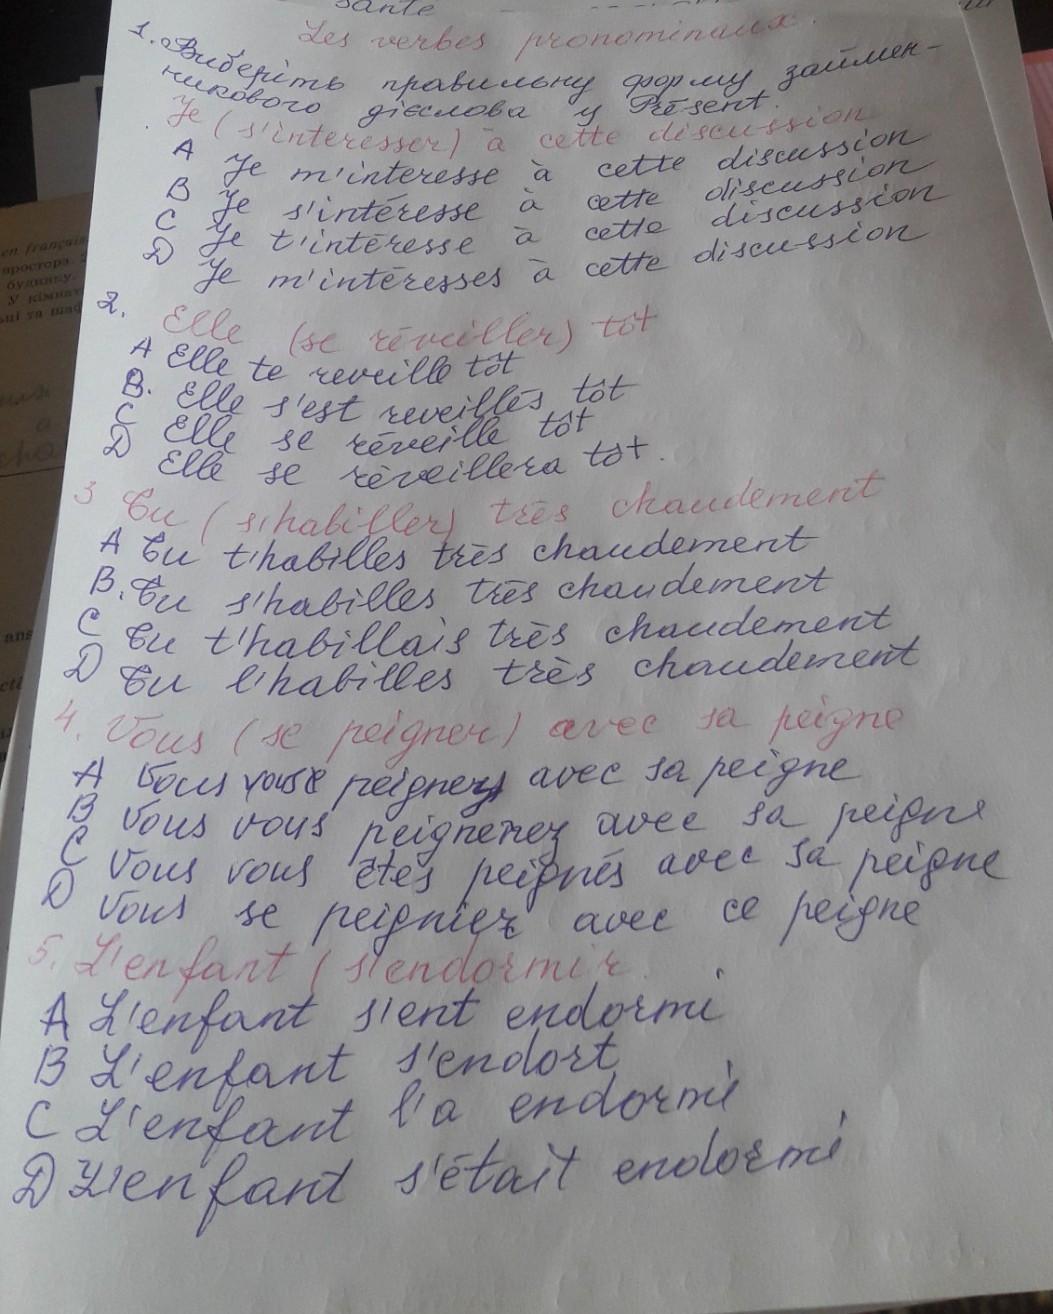 santé
Les verbes pronominaux.
1. Виберіть правильну форму займен-
никового дієслова у Présent.
Je (s'interesser) à cette discussion
A Je m'interesse à cette discussion
B Je s'intéresse à cette discussion
C Je t'intéresse à cette discussion
D Je m'intéresses à cette discussion
2. Elle (se réveiller) tôt
A Elle te reveille tôt
B. Elle s'est reveillés tôt
C Elle se réveille tôt
D Elle se réveillera tôt.
3 Tu (s'habiller) très chaudement
A Tu t'habilles très chaudement
B. Tu s'habilles très chaudement
C Tu t'habillais très chaudement
D Tu l'habilles très chaudement
4. Vous (se peigner) avec sa peigne
A Vous vous peignez avec sa peigne
B Vous vous peignerez avec sa peigne
C Vous vous êtes peignés avec sa peigne
D Vous se peigniez avec ce peigne
5. L'enfant (s'endormir.
A L'enfant s'ent endormi
B L'enfant s'endort
C L'enfant l'a endormi
D L'enfant s'était endormi
en français
простора.
будинку.
У кімнат
ьні та шаф
ans